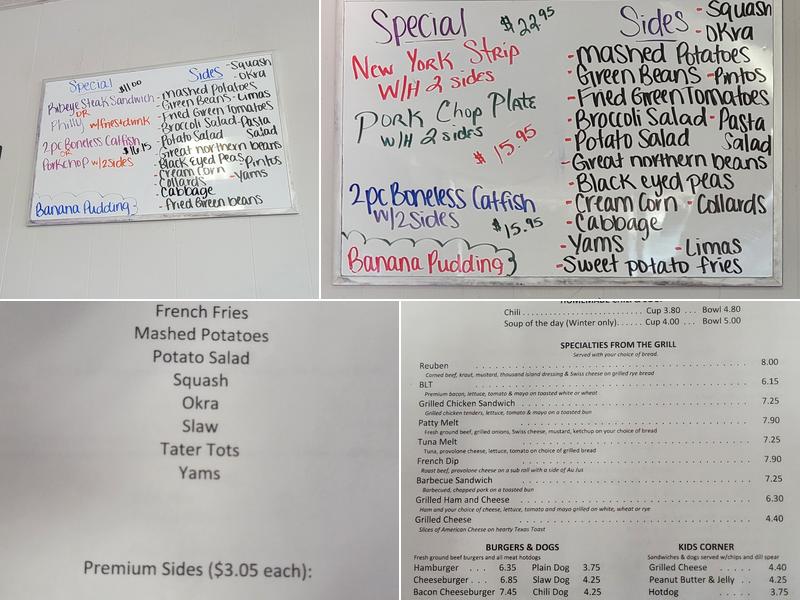 Special
$11.00
Ribeye Steak Sandwich
OR
Philly w/fries+drink
2pc Boneless Catfish
OR
$16.15
Porkchop w/2sides
Banana Pudding
Sides
- Squash
- Okra
- Mashed Potatoes
- Green Beans - Limas
- Fried Green Tomatoes
- Broccoli Salad - Pasta Salad
- Potato Salad
- Great northern beans
- Black Eyed Peas - Pintos
- Cream Corn - Yams
- Collards
- Cabbage
- Fried Green beans
Special
$22.95
New York Strip
W/H 2 sides
Pork Chop Plate
W/H 2 sides
$15.95
2pc Boneless Catfish
w/2Sides
$15.95
Banana Pudding
Sides
- Squash
- Okra
- Mashed Potatoes
- Green Beans - Pintos
- Fried Green Tomatoes
- Broccoli Salad - Pasta Salad
- Potato Salad
- Great northern beans
- Black eyed peas
- Cream Corn - Collards
- Cabbage
- Yams - Limas
- Sweet potato fries
French Fries
Mashed Potatoes
Potato Salad
Squash
Okra
Slaw
Tater Tots
Yams
Premium Sides ($3.05 each):
Chili . . . Cup 3.80 . . . Bowl 4.80
Soup of the day (Winter only). . . . . . Cup 4.00 . . Bowl 5.00
SPECIALTIES FROM THE GRILL
Served with your choice of bread.
Reuben 8.00
Corned beef, kraut, mustard, thousand island dressing & Swiss cheese on grilled rye bread
BLT 6.15
Premium bacon, lettuce, tomato & mayo on toasted white or wheat
Grilled Chicken Sandwich 7.25
Grilled chicken tenders, lettuce, tomato & mayo on a toasted bun
Patty Melt 7.90
Fresh ground beef, grilled onions, Swiss cheese, mustard, ketchup on your choice of bread
Tuna Melt 7.25
Tuna, provolone cheese, lettuce, tomato on choice of grilled bread
French Dip 7.90
Roast beef, provolone cheese on a sub roll with a side of Au Jus
Barbecue Sandwich 7.25
Barbecued, chopped pork on a toasted bun
Grilled Ham and Cheese 6.30
Ham and your choice of cheese, lettuce, tomato and mayo grilled on white, wheat or rye
Grilled Cheese 4.40
Slices of American Cheese on hearty Texas Toast
BURGERS & DOGS
Fresh ground beef burgers and all meat hotdogs
Hamburger . . . 6.35 Plain Dog 3.75
Cheeseburger . . . 6.85 Slaw Dog 4.25
Bacon Cheeseburger 7.45 Chili Dog 4.25
KIDS CORNER
Sandwiches & dogs served w/chips and dill spear
Grilled Cheese . . . . . 4.40
Peanut Butter & Jelly . . 4.25
Hotdog . . . . . 3.75